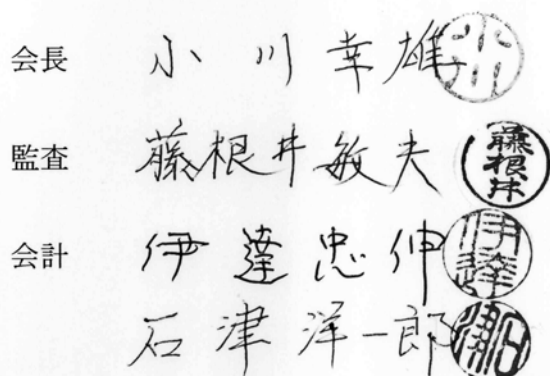 会長 小川幸雄 小川
監査 藤根井敏夫 藤根井
会計 伊達忠伸 伊達
石津洋一郎 石津